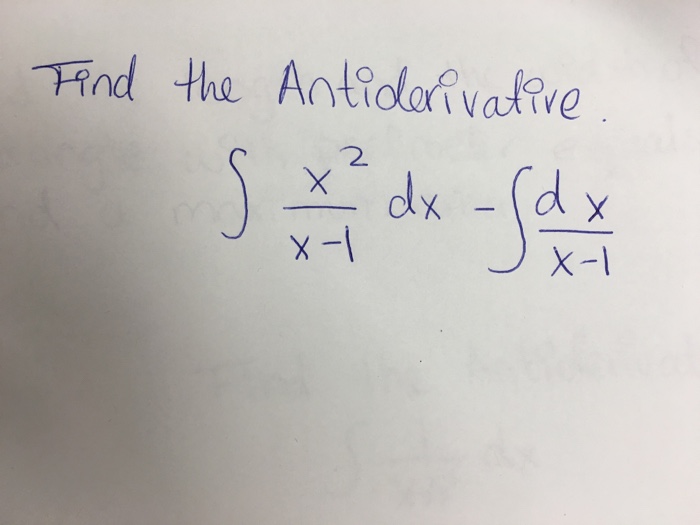 Find the Antiderivative.
∫ x² / x-1 dx - ∫ dx / x-1